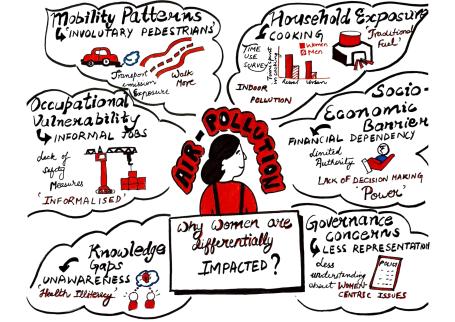 Mobility Patterns
'INVOLUTARY PEDESTRIANS'
Transport
emission
Exposure
Walk
More
Household Exposure
COOKING
'Traditional
Fuel'
TIME
USE
SURVEY
Women
Men
Rural
Urban
INDOOR
POLLUTION
Occupational
Vulnerability
INFORMAL JOBS
Lack of
Safety
Measures
'INFORMALISED'
AIR-POLLUTION
Socio-
Economic
Barrier
FINANCIAL DEPENDENCY
Limited
Authority
LACK OF DECISION MAKING
'Power'
Knowledge
Gaps
UNAWARENESS
'Health Illiteracy'
Why Women are
differentially
IMPACTED?
Governance
Concerns
LESS REPRESENTATION
Less
understanding
about WOMEN
CENTRIC ISSUES